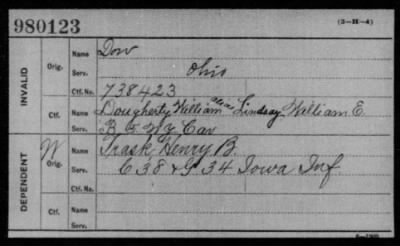 980123 (3-H-4)
INVALID Orig. Name Dow
Serv. Ohio
Ctf. No. 738423
Ctf. Name Dougherty William alias Lindsay William E.
Serv. B 5 NY Cav
DEPENDENT W Orig. Name Trask Henry B.
Serv. C 38 & G 34 Iowa Inf
Ctf. No.
Ctf. Name
Serv.